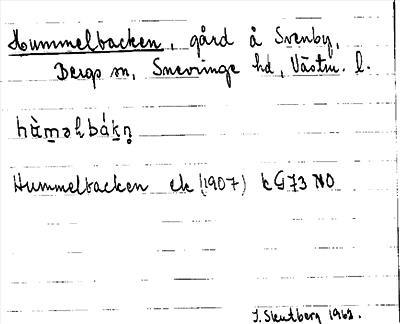 Hummelbacken, gård å Svenby,
Bergs sn, Snevringe hd, Västm. l.
hùm̲əlbák̲n̥
Hummelbacken ek (1907) k G73 NO
1962.